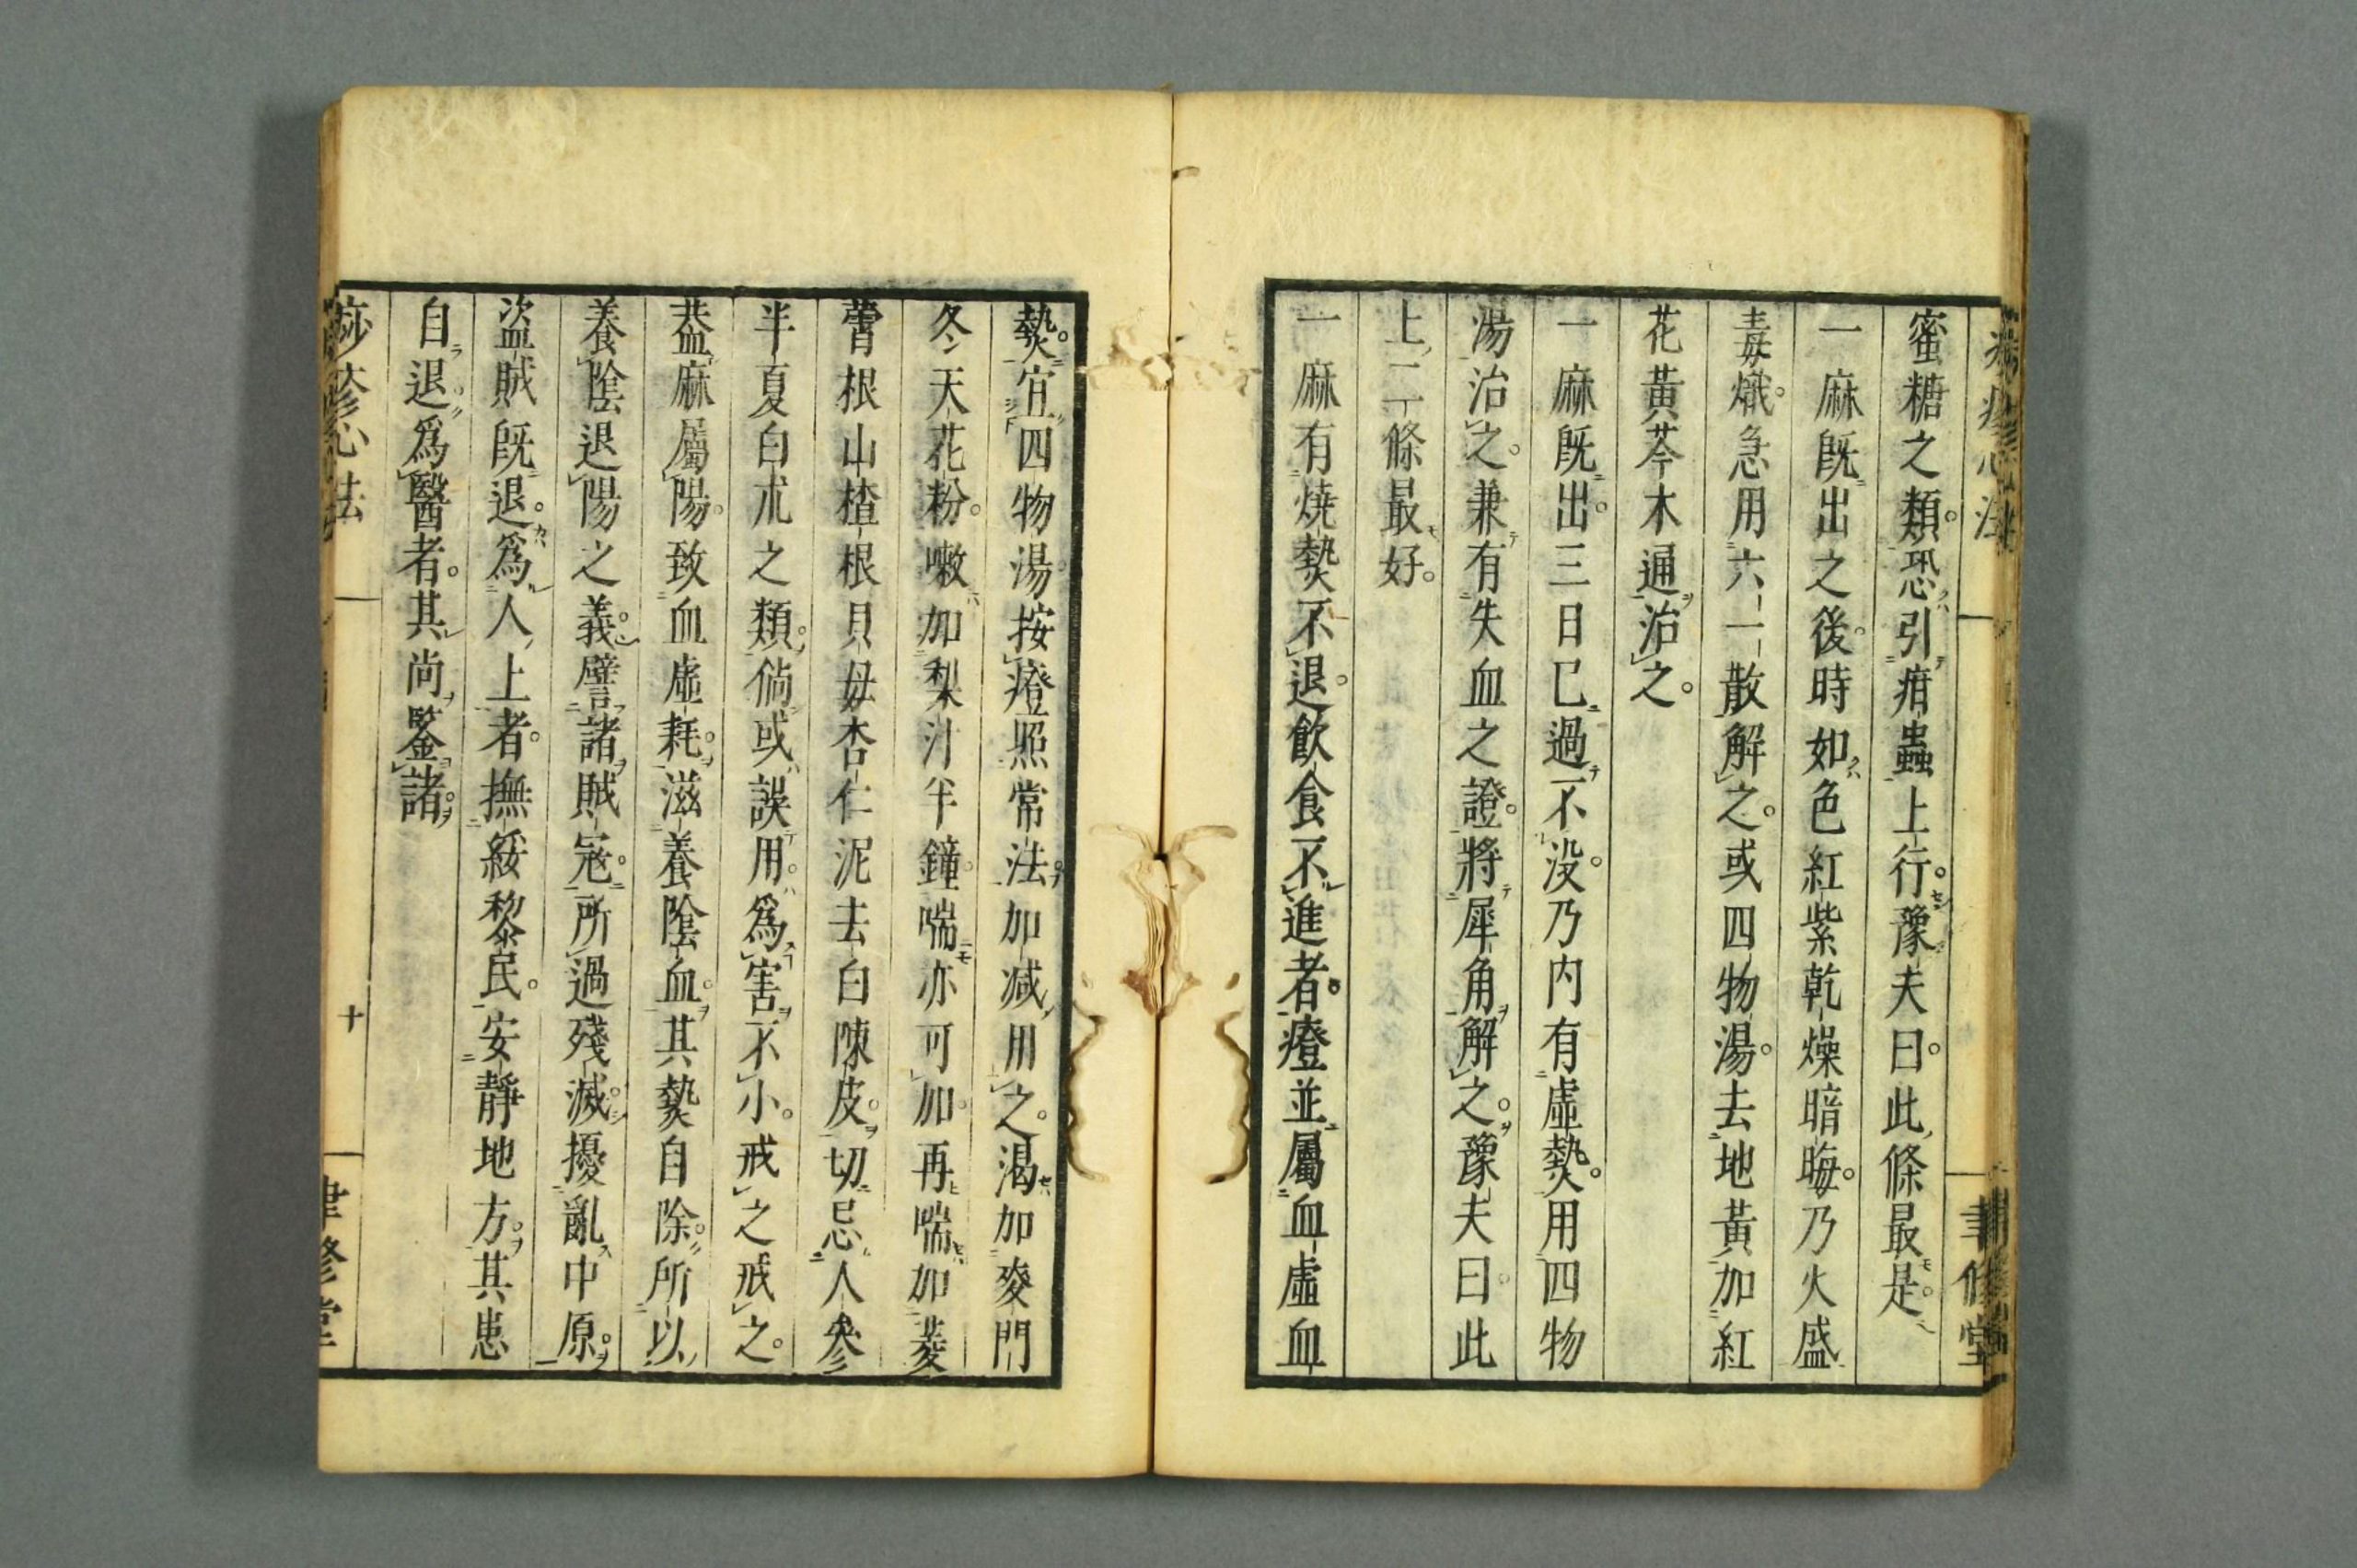 蜜糖之類。恐引疳蟲上行。豫夫曰。此條最是。
一麻既出之後。時如色紅紫乾燥暗晦。乃火盛
毒熾。急用六一散解之。或四物湯。去地黃加紅
花黃芩木通治之。
一麻既出。三日已過不没。乃内有虛㷍。用四物
湯治之。兼有失血之證。將犀角解之。豫夫曰。此
上二條最好。
一麻有燒㷍不退。飲食不進者。瘄並屬血虛血
㷍。宜四物湯按瘄照常法。加减用之。渴加麥門
冬天花粉。嗽加梨汁半鐘。喘亦可加。再喘加蔆
蕾根山楂根貝母杏仁泥去白陳皮。切忌人參
半夏白朮之類。倘或誤用。為害不小。戒之戒之。
葢麻屬陽。致血虛耗。滋養陰血。其㷍自除。所以
養陰退陽之義。譬諸賊寇。所過殘滅。擾亂中原。
盜賊既退。為人上者。撫綏黎民。安靜地方。其患
自退。為醫者。其尚鑒諸。
痧疹心法
十
聿修堂